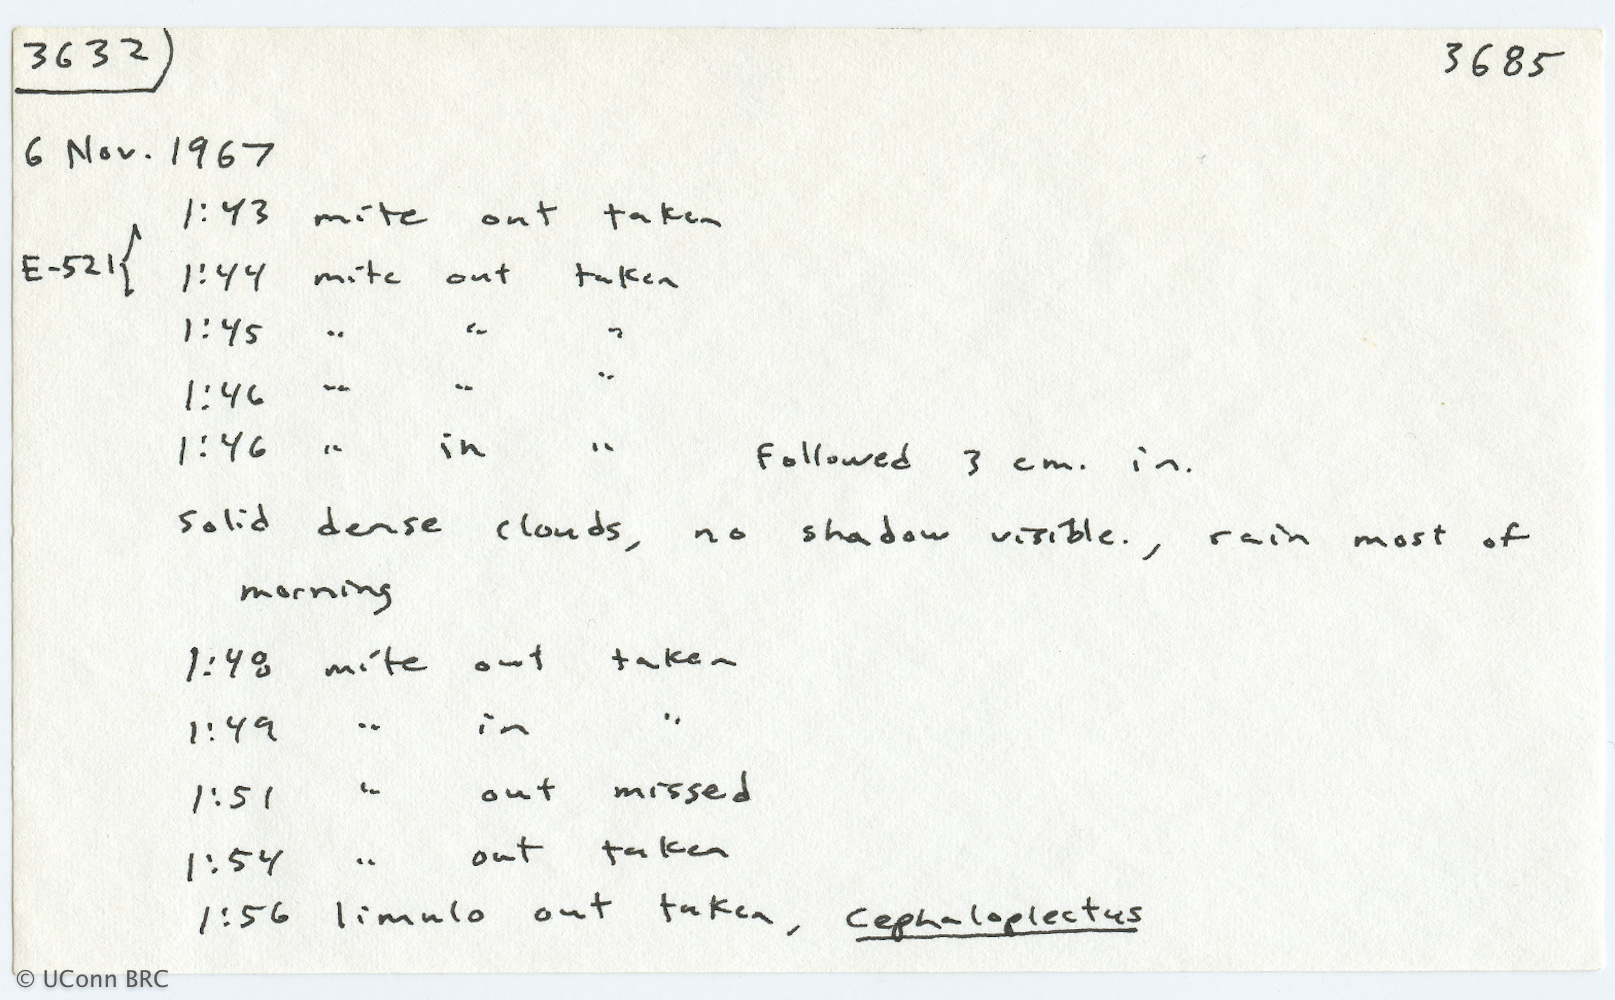 3632 3685
6 Nov. 1967
1:43 mite out taken
E-521{ 1:44 mite out taken
1:45 " " "
1:46 " " "
1:46 " in " Followed 3 cm. in.
solid dense clouds, no shadow visible., rain most of
morning
1:48 mite out taken
1:49 " in "
1:51 " out missed
1:54 " out taken
1:56 limulo out taken, Cephaloplectus
© UConn BRC